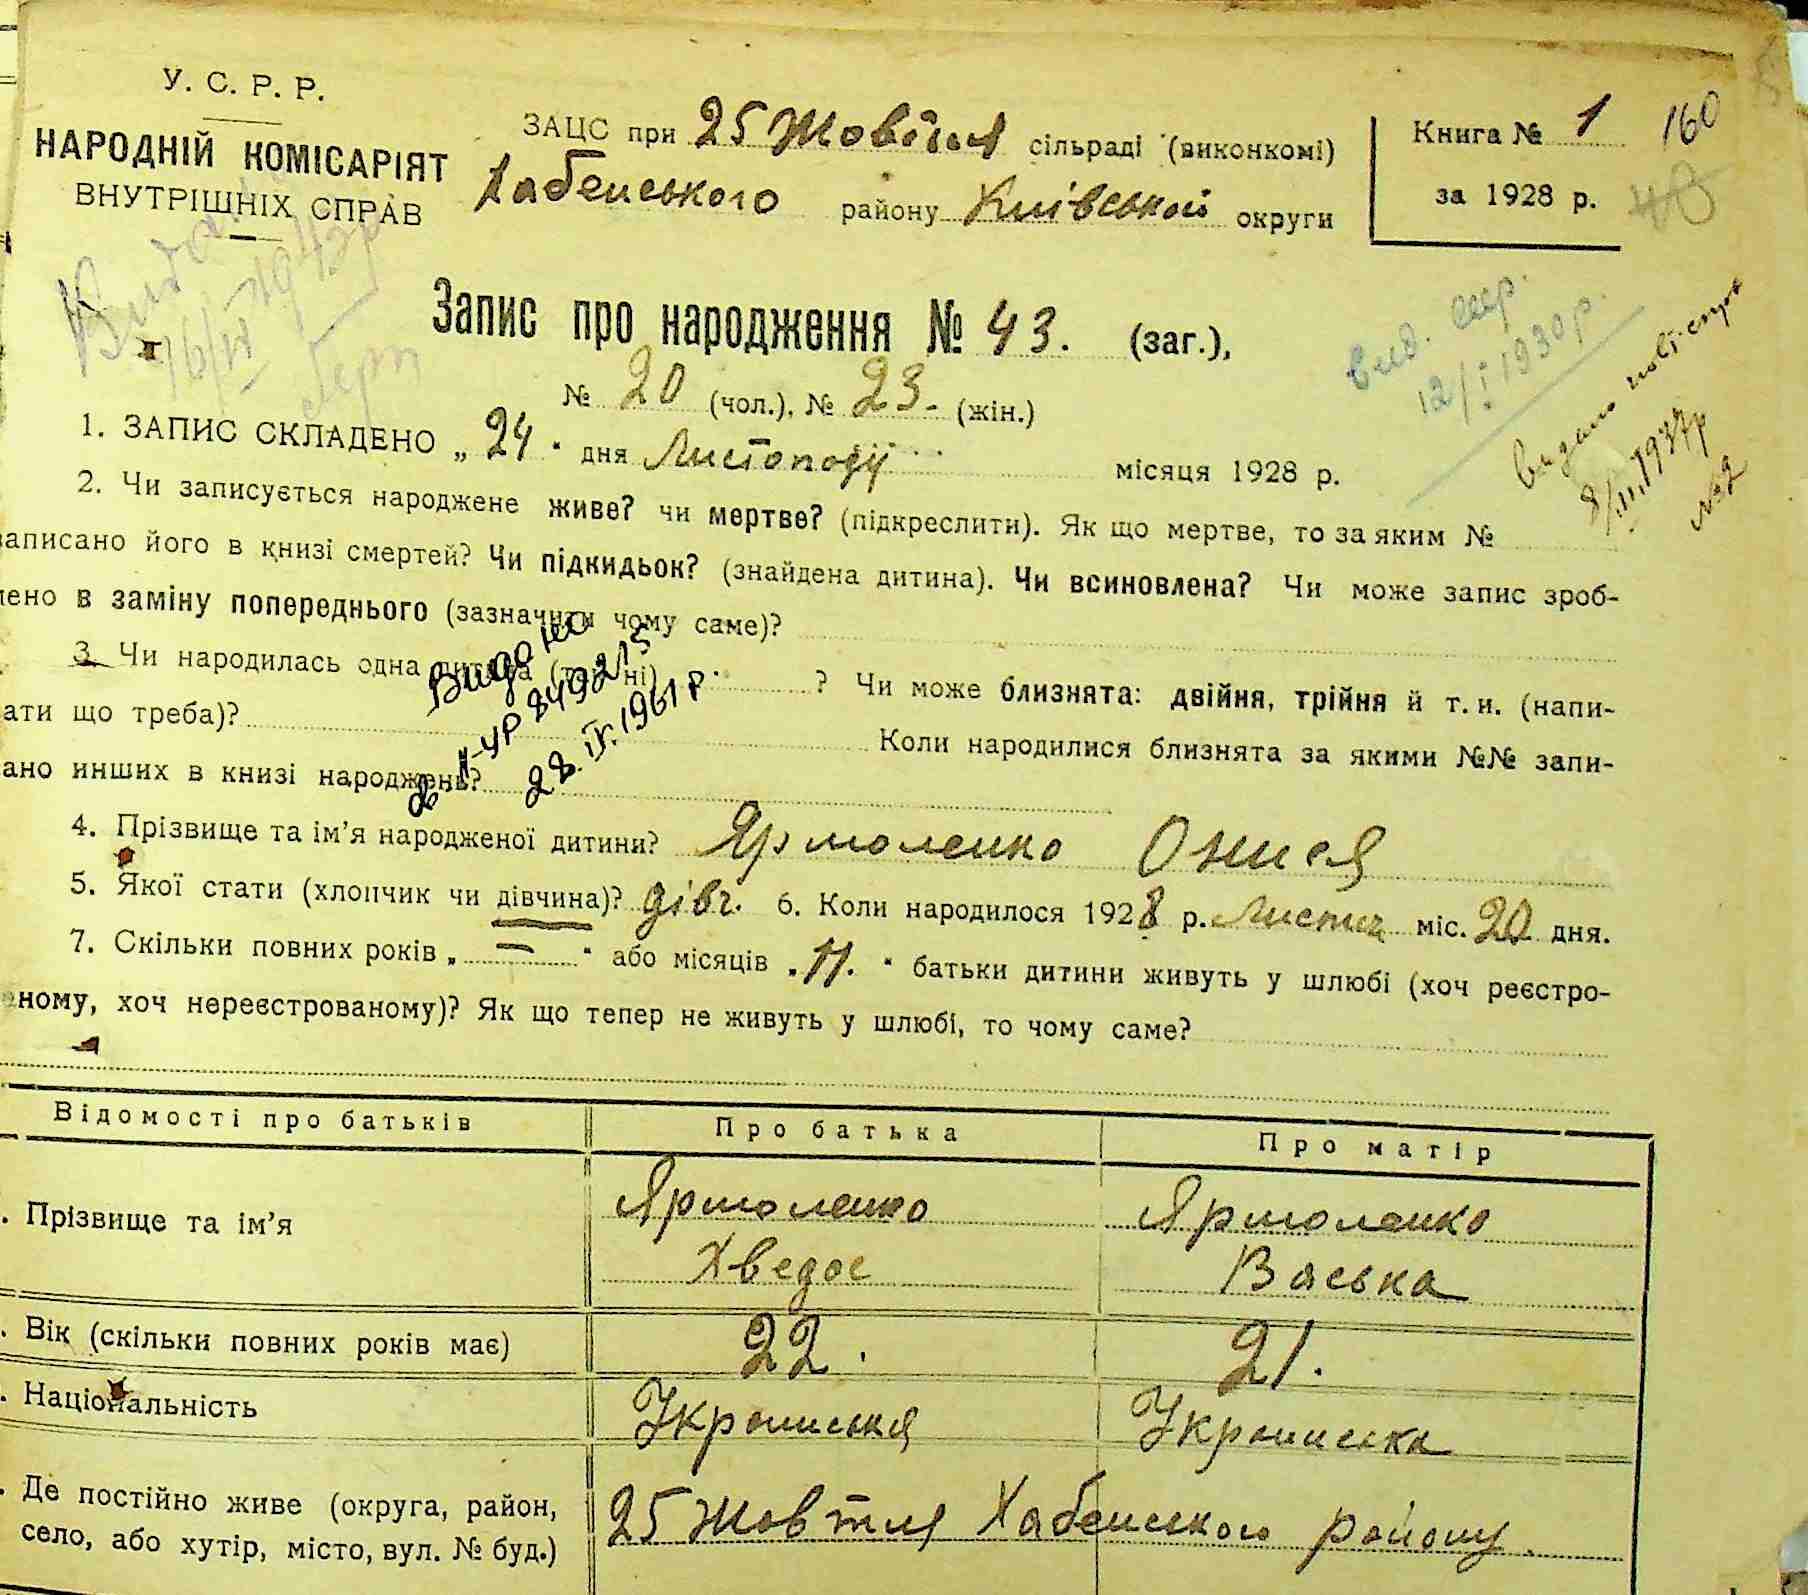 У. С. Р. Р.
НАРОДНІЙ КОМІСАРІЯТ
ВНУТРІШНІХ СПРАВ
ЗАЦС при 25 Жовтня сільраді (виконкомі)
Хабенського району Київської округи
Книга № 1
за 1928 р.
160
48
Запис про народження № 43. (заг.),
№ 20 (чол.), № 23. (жін.)
вид.
12/I 1930 р.
видано
8/II.1937р
№2
1. ЗАПИС СКЛАДЕНО „ 24 " дня Листоподу місяця 1928 р.
2. Чи записується народжене живе? чи мертве? (підкреслити). Як що мертве, то за яким №
записано його в книзі смертей? Чи підкидьок? (знайдена дитина). Чи всиновлена? Чи може запис зроб-
лено в заміну попереднього (зазначити чому саме)?
3. Чи народилась одна дитина (так ні) ? Чи може близнята: двійня, трійня й т. и. (напи-
ати що треба)? Коли народилися близнята за якими №№ запи-
ано инших в книзі народжень?
Видано
28.IV.1961р
4. Прізвище та ім’я народженої дитини? Ярмоленко
5. Якої стати (хлопчик чи дівчина)? дівч. 6. Коли народилося 1928 р. Листоп міс. 20 дня.
7. Скільки повних років „ = " або місяців „ 11. " батьки дитини живуть у шлюбі (хоч реєстро-
ному, хоч нереєстрованому)? Як що тепер не живуть у шлюбі, то чому саме?
Відомості про батьків Про батька Про матір
. Прізвище та ім’я Ярмоленко Ярмоленко
Хведос Васька
. Вік (скільки повних років має) 22. 21.
. Національність Українська Українська
. Де постійно живе (округа, район,
село, або хутір, місто, вул. № буд.)
25 Жовтня Хабенського району.